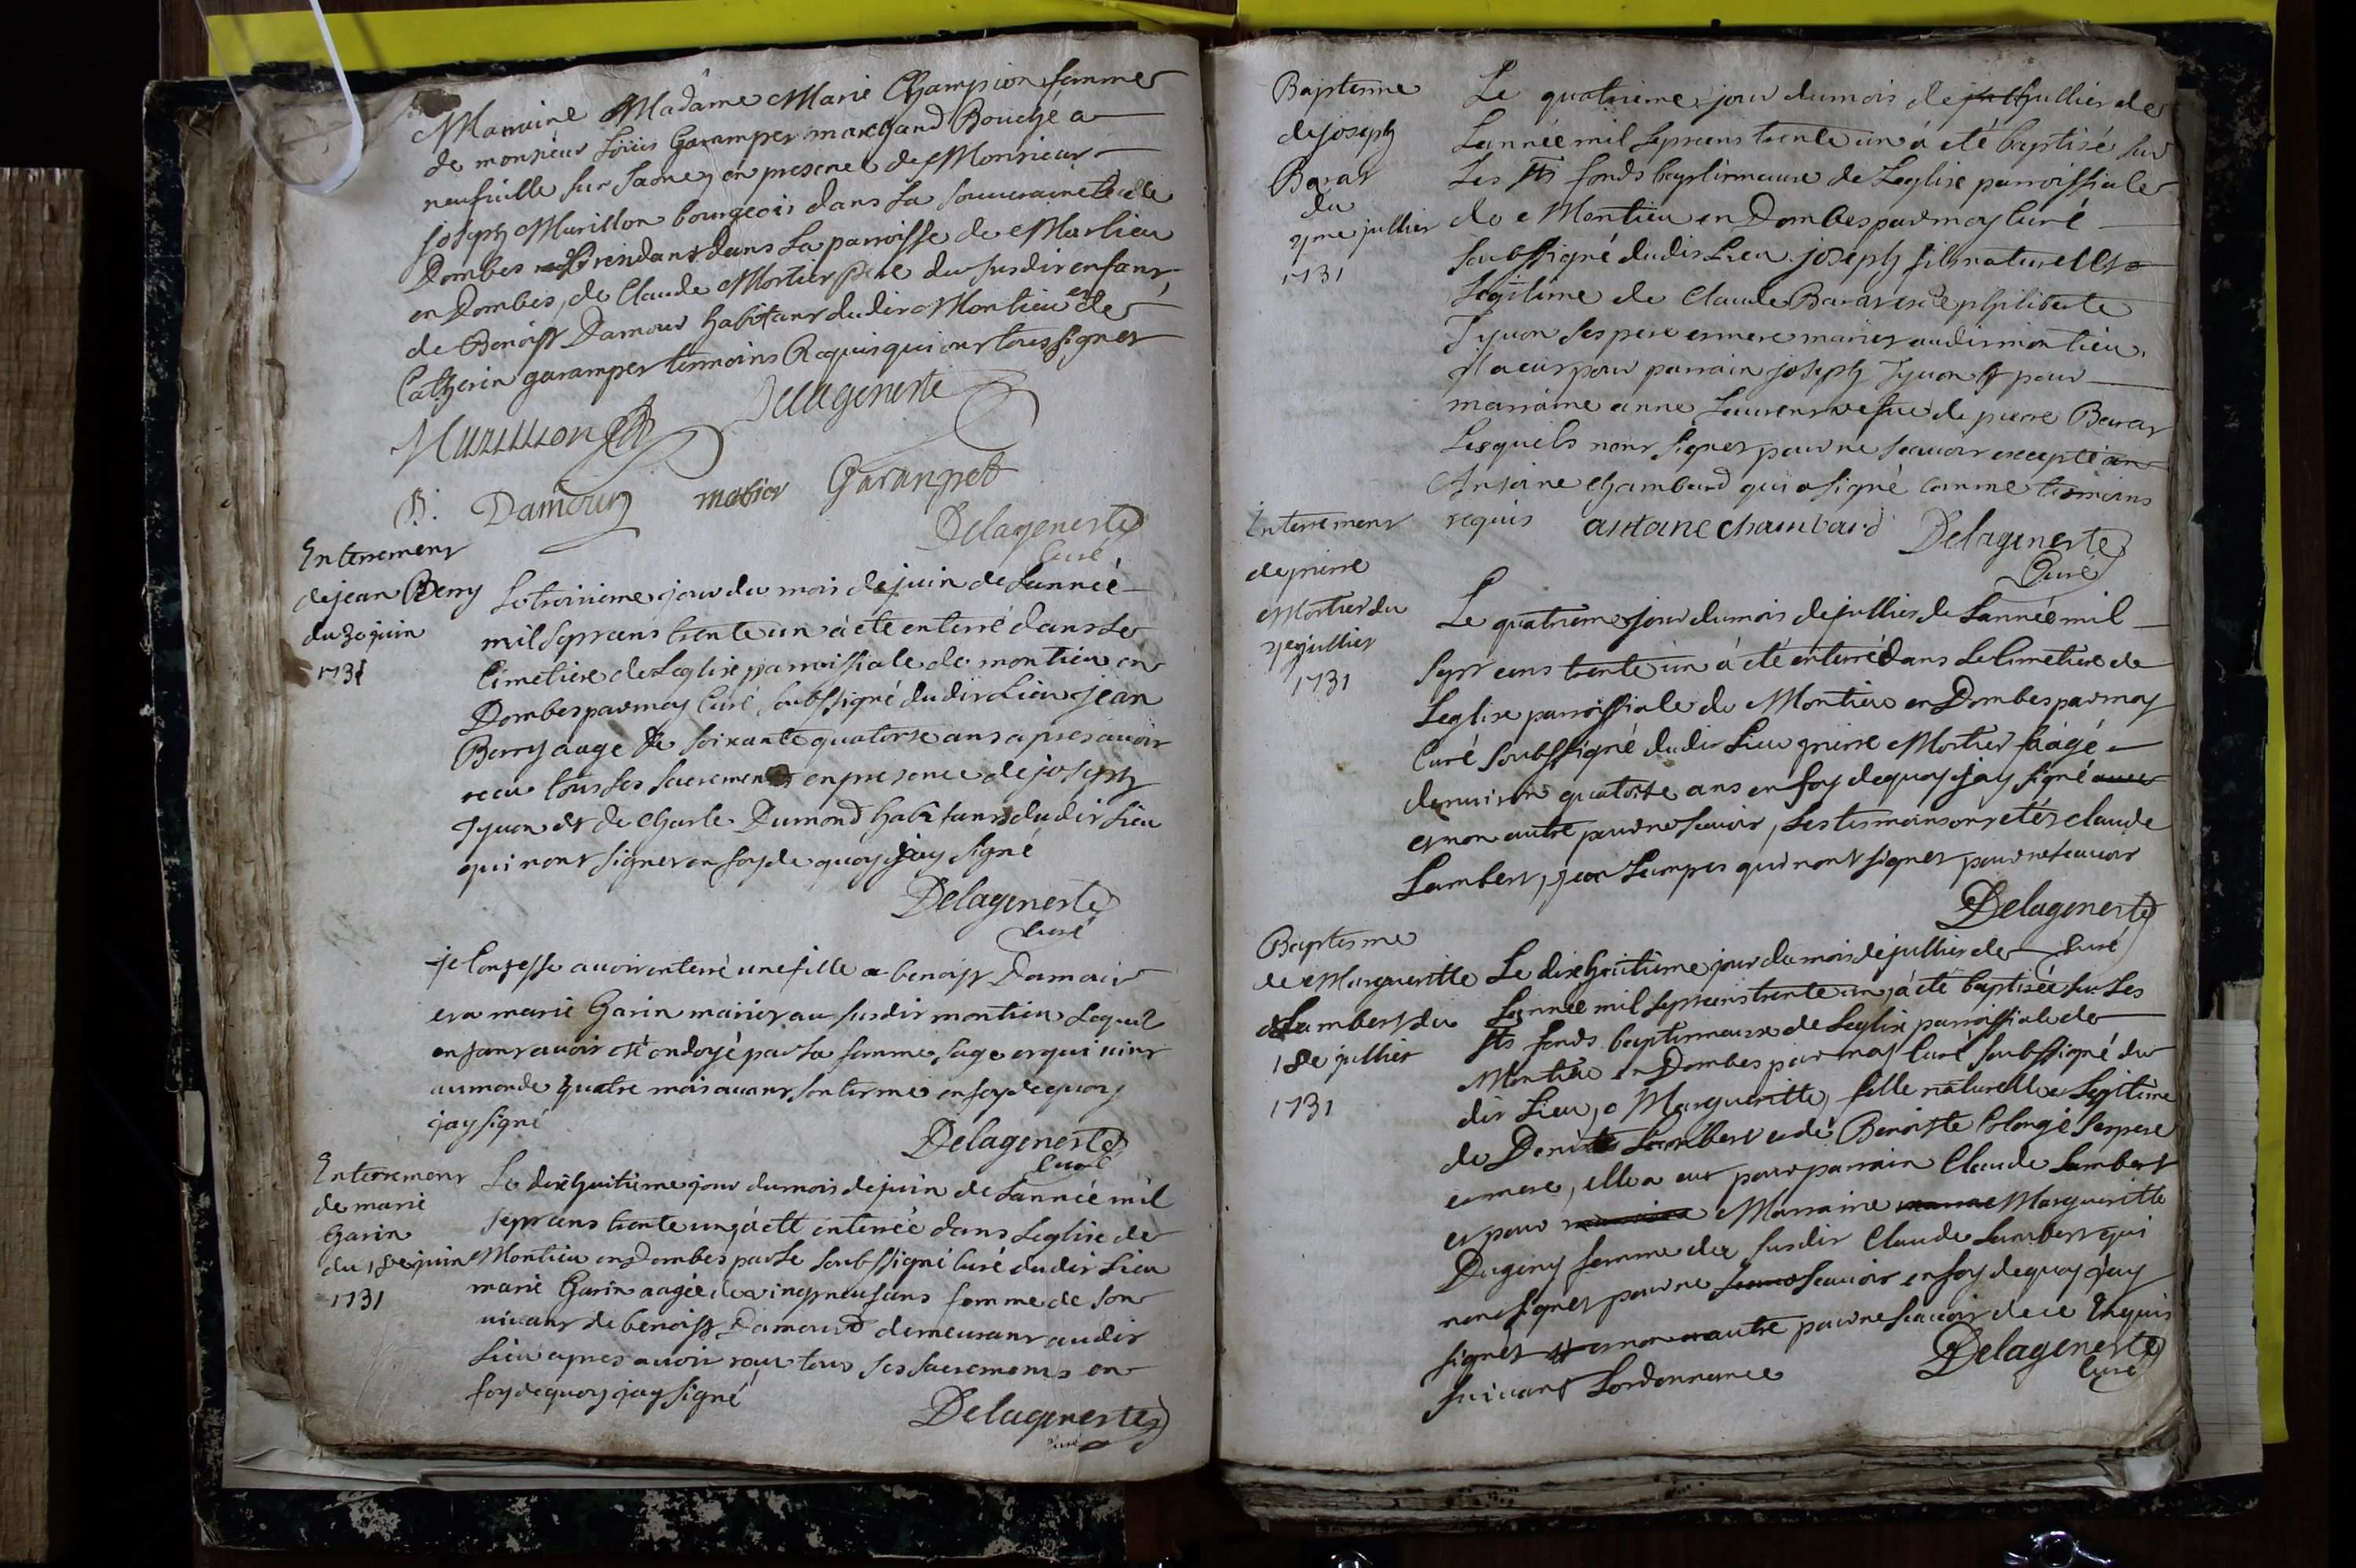 Marraine Madame Marie Champion femme
de monsieur Loüis Garamper marchand Bouché a
neufville sur Saone, en presence de Monsieur
joseph Murillon bourgeois dans la souveraineté de
Dombes residant dans la parroisse de Marlieu
en Dombes, de Claude Mortier pere du susdit enfant,
de Benoist Damour habitans dudit Montieu et de
Catherin garamper temoins Requis qui ont tous signer
Murillon Delageneste
B. Damour mortier Garampet
Delageneste
Curé
Enterrement
de jean Berry
du 3e juin
1731
Le troisieme jour du mois de juin de Lannée
mil sept cens trente un à eté enterré dans le
Cimetiere de Leglise parroissiale de montieu en
Dombes par moy Curé soubssigné dudit Lieu jean
Berry aagé de soixante quatorse ans apres avoir
recu tous les sacrements en presence de joseph
Tyuon et de Charle Dumond habitans dudit Lieu
qui nont signer en foy de quoy jay signé
Delageneste
Curé
je Confesse avoir enterré une fille a benoist Damour
et a marie Garin mariés au susdit montieu Lequel
enfant avoir eté ondoyé par la femme sage et qui vint
au monde quatre mois avant son terme en foy de quoy
jay signé
Delageneste
Curé
Enterrement
de marie
Garin
du 18e juin
1731
Le dixhuitieme jour du mois de juin de Lannée mil
sept cens trente un à eté enterrée dans Leglise de
Montieu en Dombes par le soubssigné Curé dudit Lieu
marie Garin aagée de vingt neuf ans femme de son
vivant de benoist Damour demeurant audit
Lieu apres avoir reçu tous ses sacrements en
foy de quoy jay signé
Delageneste
Curé
Baptesme
de joseph
Barat
du
4me jullier
1731
Le quatrieme jour du mois de jullier de
Lannée mil sept cens trente un à eté baptisé sur
Les sts fonds baptismaux de Leglise parroissiale
de Montieu en Dombes par moy Curé
soubssigné dudit Lieu joseph fils naturel et
Legitime de Claude Barat et de philiberte
Tyuon ses pere et mere mariez audit montieu.
il a eut pour parrain joseph Tyuon et pour
marraine anne Laurent vefve de pierre Barat
Lesquels nont signer pour ne scavoir excepté
Antoine Chambard qui a signé comme temoins
requis antoine chambard Delageneste
Curé
Enterrement
de pierre
Mortier du
4e jullier
1731
Le quatrieme jour du mois de jullier de Lannée mil
sept cens trente un à eté enterré dans le Cimetiere de
Leglise parroissiale de Montieu en Dombes par moy
Curé soubssigné dudit Lieu pierre Mortier àagé
denviron quatorse ans en foy de quoy jay signé
et non autre pour ne scavoir, Les tesmoins ont etés claude
Lambert, jean Lamper qui nont signer pour ne scavoir
Delageneste
Curé
Baptesme
de Margueritte
Lambert du
18e jullier
1731
Le dixhuitieme jour du mois de jullier de
Lannée mil sept cens trente un, à eté baptisée sur Les
sts fonds baptismaux de Leglise parroissiale de
Montieu en Dombes par moy Curé soubssigné du
dit Lieu, Margueritte, fille naturelle et Legitime
de Denis Lambert et de Benoiste Colonge ses pere
et mere, elle a eut pour parrain Claude Lambert
et pour Marraine Margueritte
Dugeny femme de susdit Claude Lambert qui
nont signer pour ne scavoir en foy de quoy jay
signer et non autre pour ne scavoir de ce Enquis
suivant Lordonnance Delageneste
Curé